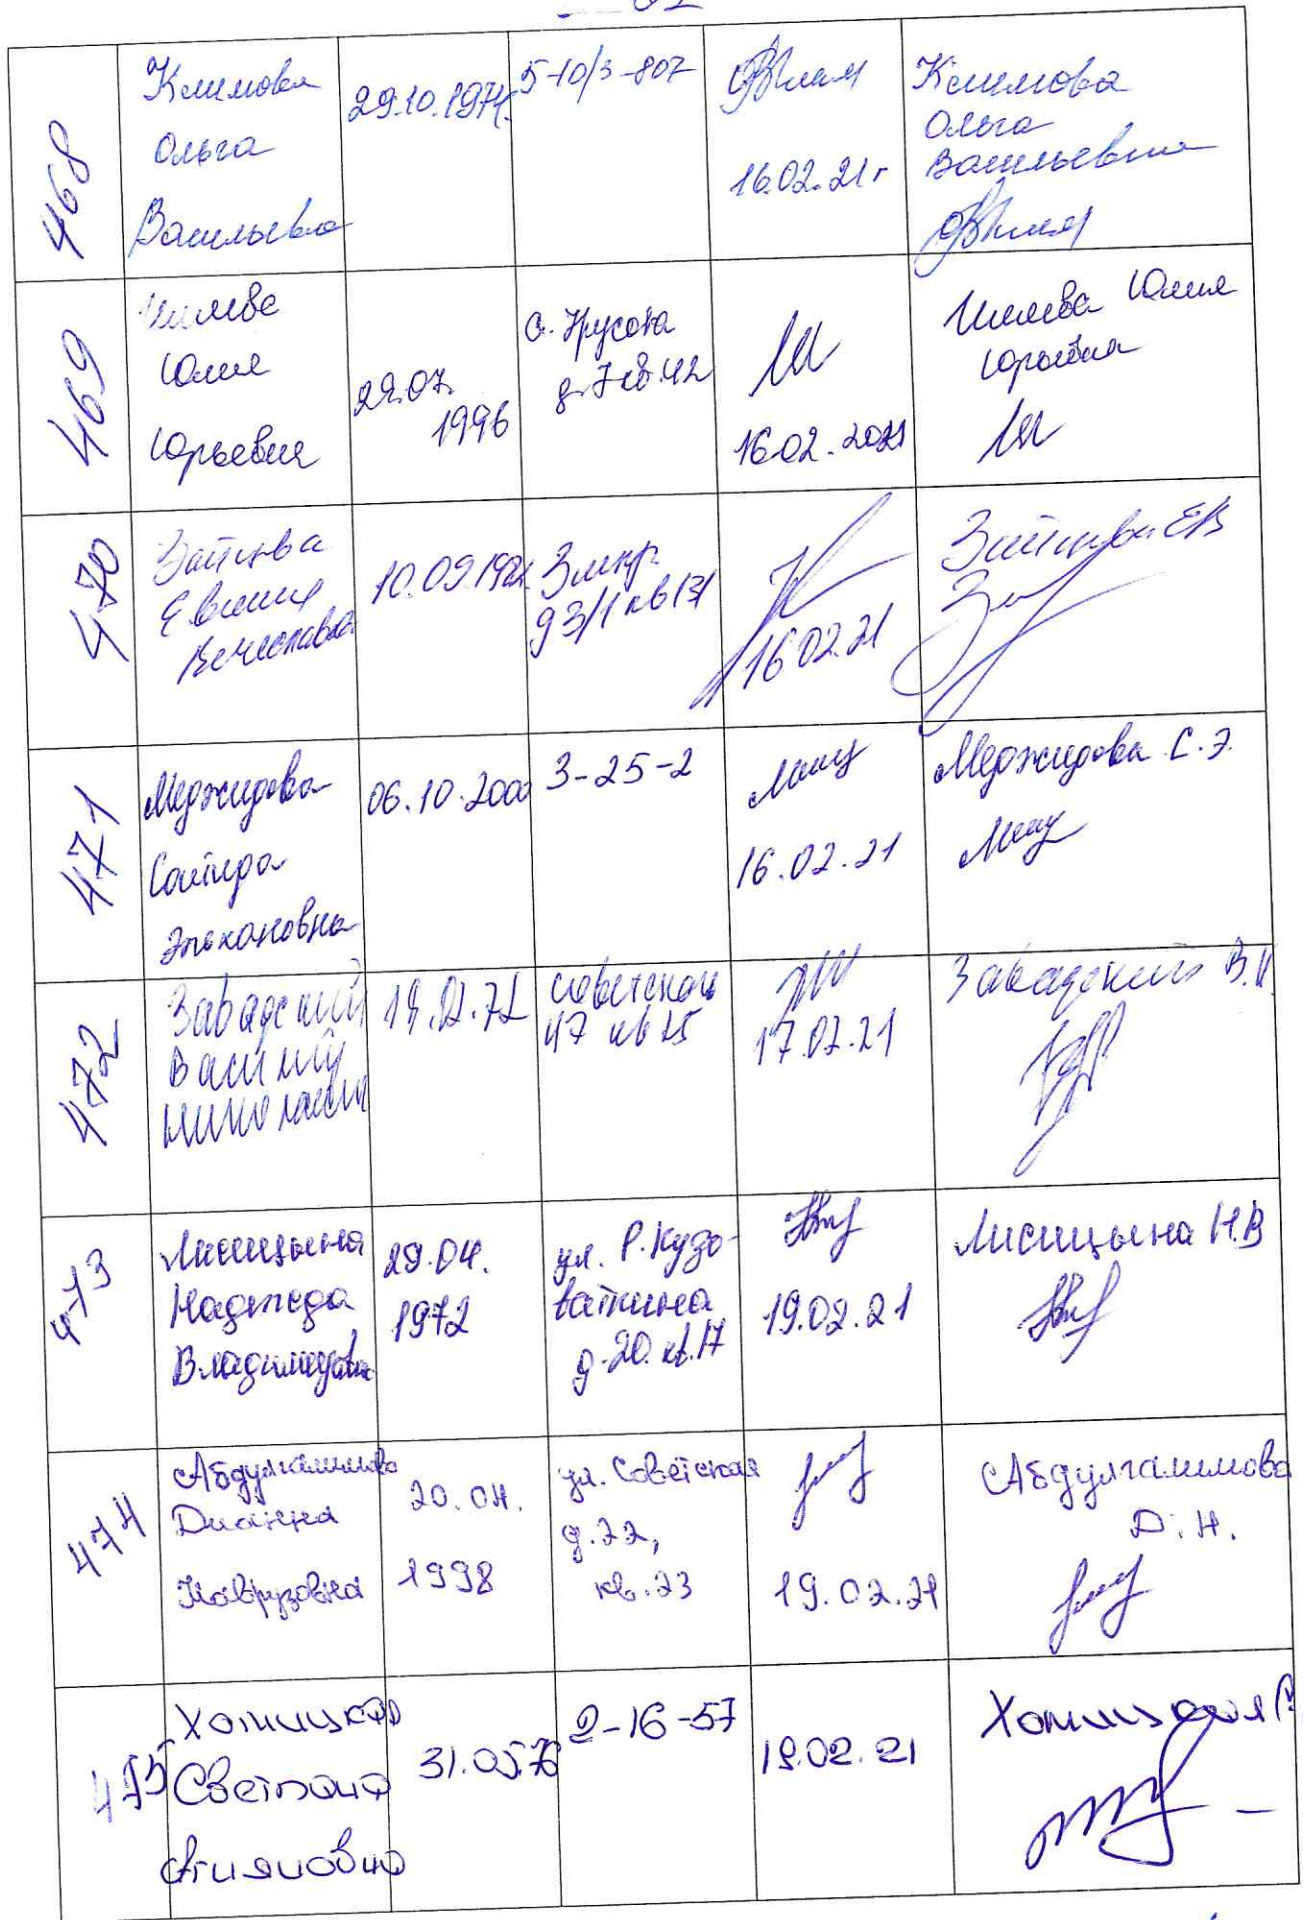 468
Климова
Ольга
Васильевна
29.10.1974г.
5-10/3-807
16.02.21г
Климова
Ольга
Васильевна
469
Юлия
Юрьевна
29.07.
1996
д.7 кв.42
16.02.2021
Юлия
Юрьевна
470
Зайцева
Евгения
Вячеславовна
10.09.1981
3 мкр.
д 3/1 кв 131
16.02.21
Зайцева ЕВ
471
Меджидова
Саигра
Эльхановна
06.10.2000
3-25-2
16.02.21
Меджидова С.Э.
472
Завадский
Василий
Николаевич
19.02.72
Советская
47 кв 25
17.02.21
Завадский В.Н
473
Лисицына
Надежда
Владимировна
29.04.
1972
ул. Р.Кузо-
ваткина
д.20. кв.17
19.02.21
Лисицына Н.В
474
Абдулгалимова
Дианна
Наврузовна
20.04.
1998
ул. Советская
д.22,
кв.23
19.02.21
Абдулгалимова
Д.Н.
475
Хотицкая
Светлана
31.05.76
2-16-57
19.02.21
Хотицкая